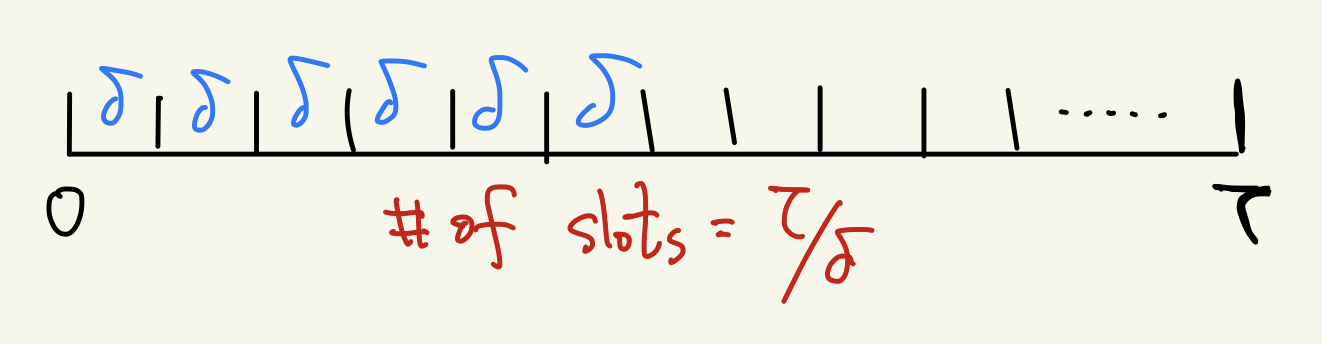 δ δ δ δ δ δ
.....
0 τ
# of slots = τ/δ